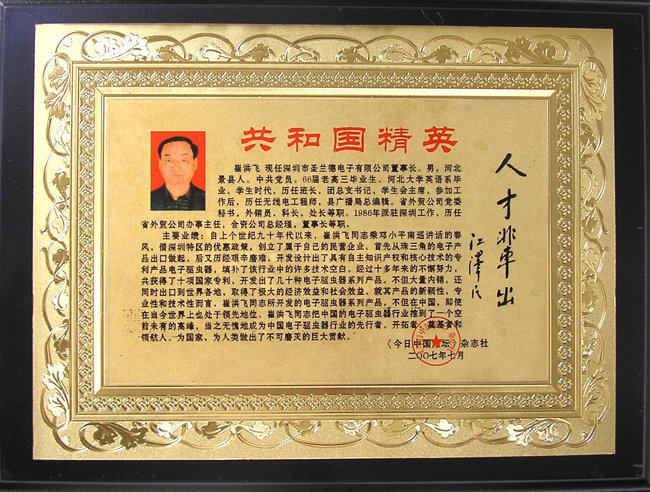 共和国精英
崔洪飞 现任深圳市圣兰德电子有限公司董事长。男。河北
景县人。中共党员。66届老高三毕业生。河北大学英语系毕
业。学生时代、历任班长，团总支书记，学生会主席。参加工
作后，历任无线电工程师，县广播局总编辑。省外贸公司党委
秘书，外销员，科长，处长等职。1986年派驻深圳工作，历任
省外贸公司办事主任，合资公司总经理，董事长等职。
主要业绩：自上个世纪九十年代以来，崔洪飞同志乘邓小平南巡讲话的春
风，借深圳特区的优惠政策，创立了属于自己的民营企业，首先从珠三角的电子产
品出口做起，后又历经艰辛磨难。开发设计出了具有自主知识产权和核心技术的专
利产品电子驱虫器，填补了该行业中的许多技术空白。经过十多年来的不懈努力，
共获得了十项国家专利，开发出了几十种电子驱虫器系列产品。不但大量内销，还
同时出口到世界各地，取得了极大的经济效益和社会效益。就其产品的新颖性、专
业性和技术性而言，崔洪飞同志所开发的电子驱虫器系列产品，不但在中国，即使
在当今世界上也处于领先地位。崔洪飞同志把中国的电子驱虫器行业推到了一个空
前未有的高峰。当之无愧地成为中国电子驱虫器行业的先行者，开拓者，奠基者和
领航人。为国家，为人类做出了不可磨灭的巨大贡献。
《今日中国论坛》杂志社
二〇〇七年七月
人才辈出
江泽民